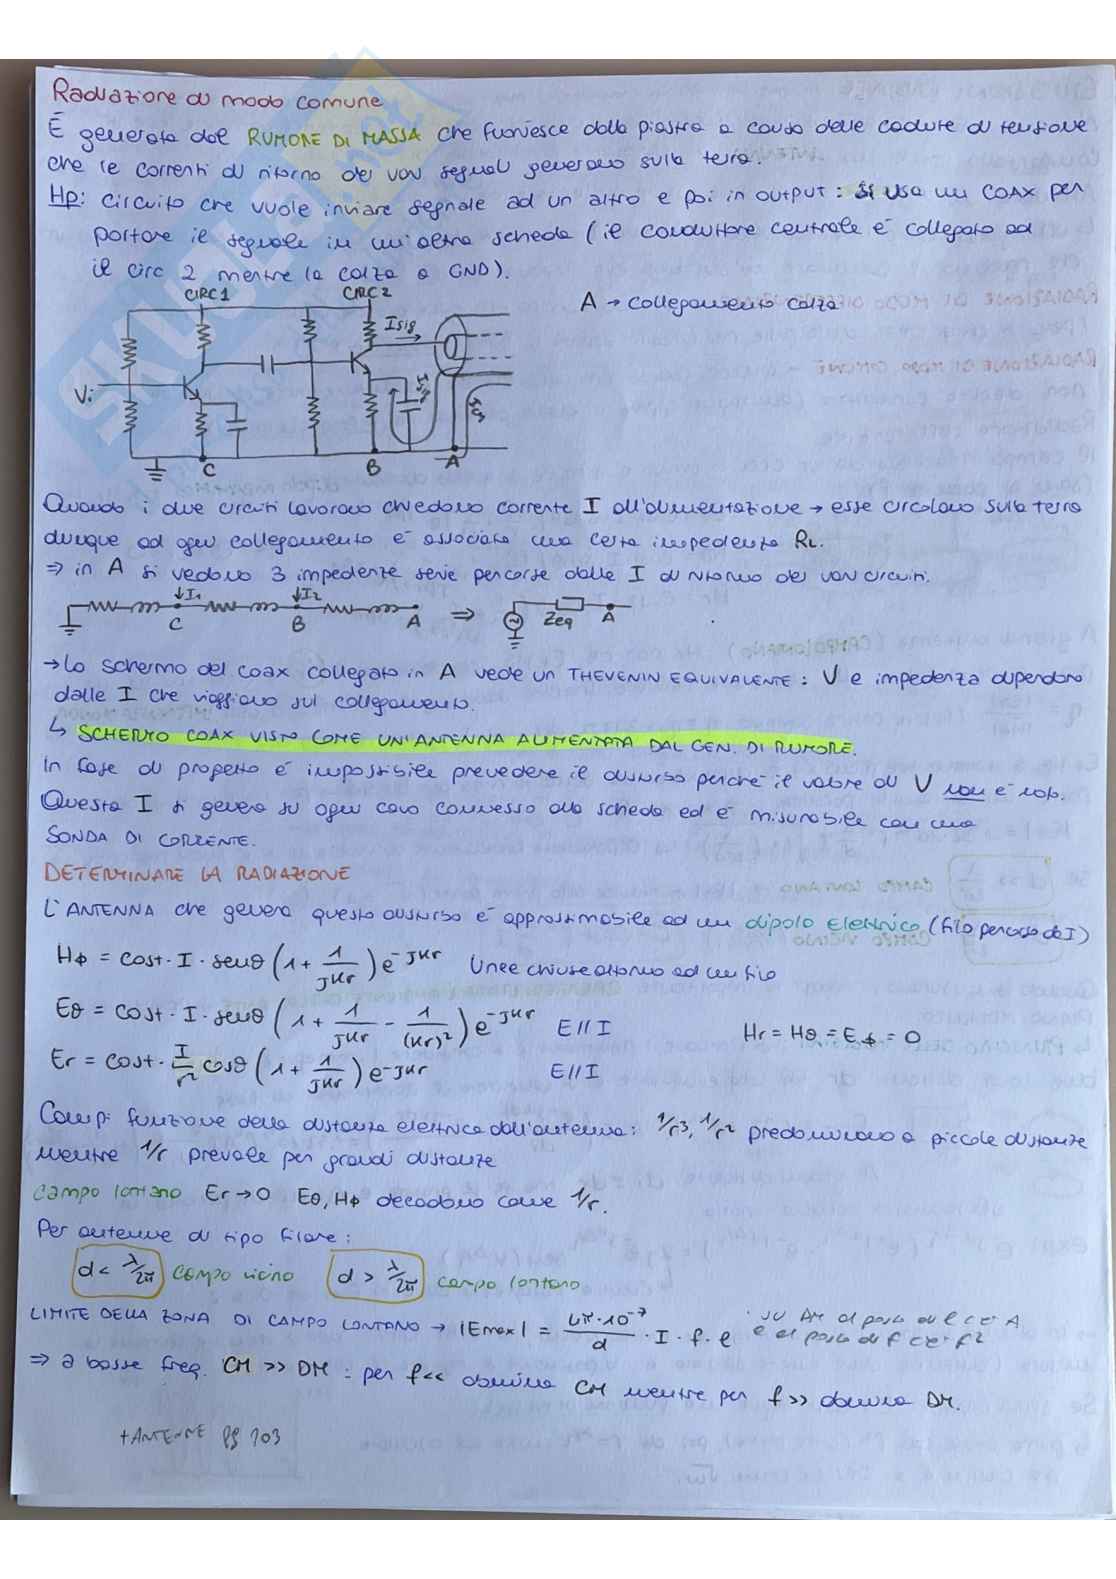 Radiazione di modo comune
È generata dal RUMORE DI MASSA che fuoriesce dalla piastra a causa delle cadute di tensione
che le correnti di ritorno dei vari segnali generano sulla terra.
Hp: circuito che vuole inviare segnale ad un altro e poi in output: si usa un COAX per
portare il segnale in un'altra scheda (il conduttore centrale è collegato ad
il circ 2 mentre la calza a GND).
CIRC1 CIRC2
A → collegamento calza
Isig
Vi
Isig
Icm
C B A
Quando i due circuiti lavorano chiedono corrente I all'alimentazione → esse circolano sulla terra
dunque ad ogni collegamento è associata una certa impedenza RL.
⇒ in A si vedono 3 impedenze serie percorse dalle I di ritorno dei vari circuiti.
↓I1 ↓I2
C B A ⇒ Zeq A
→ Lo schermo del coax collegato in A vede un THEVENIN EQUIVALENTE: V e impedenza dipendono
dalle I che viaggiano sul collegamento.
↳ SCHERMO COAX VISTO COME UN'ANTENNA ALIMENTATA DAL GEN. DI RUMORE.
In fase di progetto è impossibile prevedere il disturbo perché il valore di V non è noto.
Questa I si genera su ogni cavo connesso alla scheda ed è misurabile con una
SONDA DI CORRENTE.
DETERMINARE LA RADIAZIONE
L'ANTENNA che genera questo disturbo è approssimabile ad un dipolo elettrico (filo percorso da I)
Hϕ = cost · I · senθ (1 + 1/jkr) e^-jkr Linee chiuse attorno ad un filo
Eθ = cost · I · senθ (1 + 1/jkr - 1/(kr)²) e^-jkr E // I Hr = Hθ = Eϕ = 0
Er = cost · I/r² cosθ (1 + 1/jkr) e^-jkr E // I
Campi funzione della distanza elettrica dall'antenna: 1/r³, 1/r² predominano a piccole distanze
mentre 1/r prevale per grandi distanze
campo lontano Er → 0 Eθ, Hϕ decadono come 1/r.
Per antenne di tipo filare:
d < λ/2π campo vicino d > λ/2π campo lontano
LIMITE DELLA ZONA DI CAMPO LONTANO → |Emax| = 4π·10⁻⁷/d · I · f · l
su DM al posto di l c'è A
e al posto di f c'è f²
⇒ a basse freq. CM >> DM : per f<< domina CM mentre per f>> domina DM.
+ANTENNE pg 103